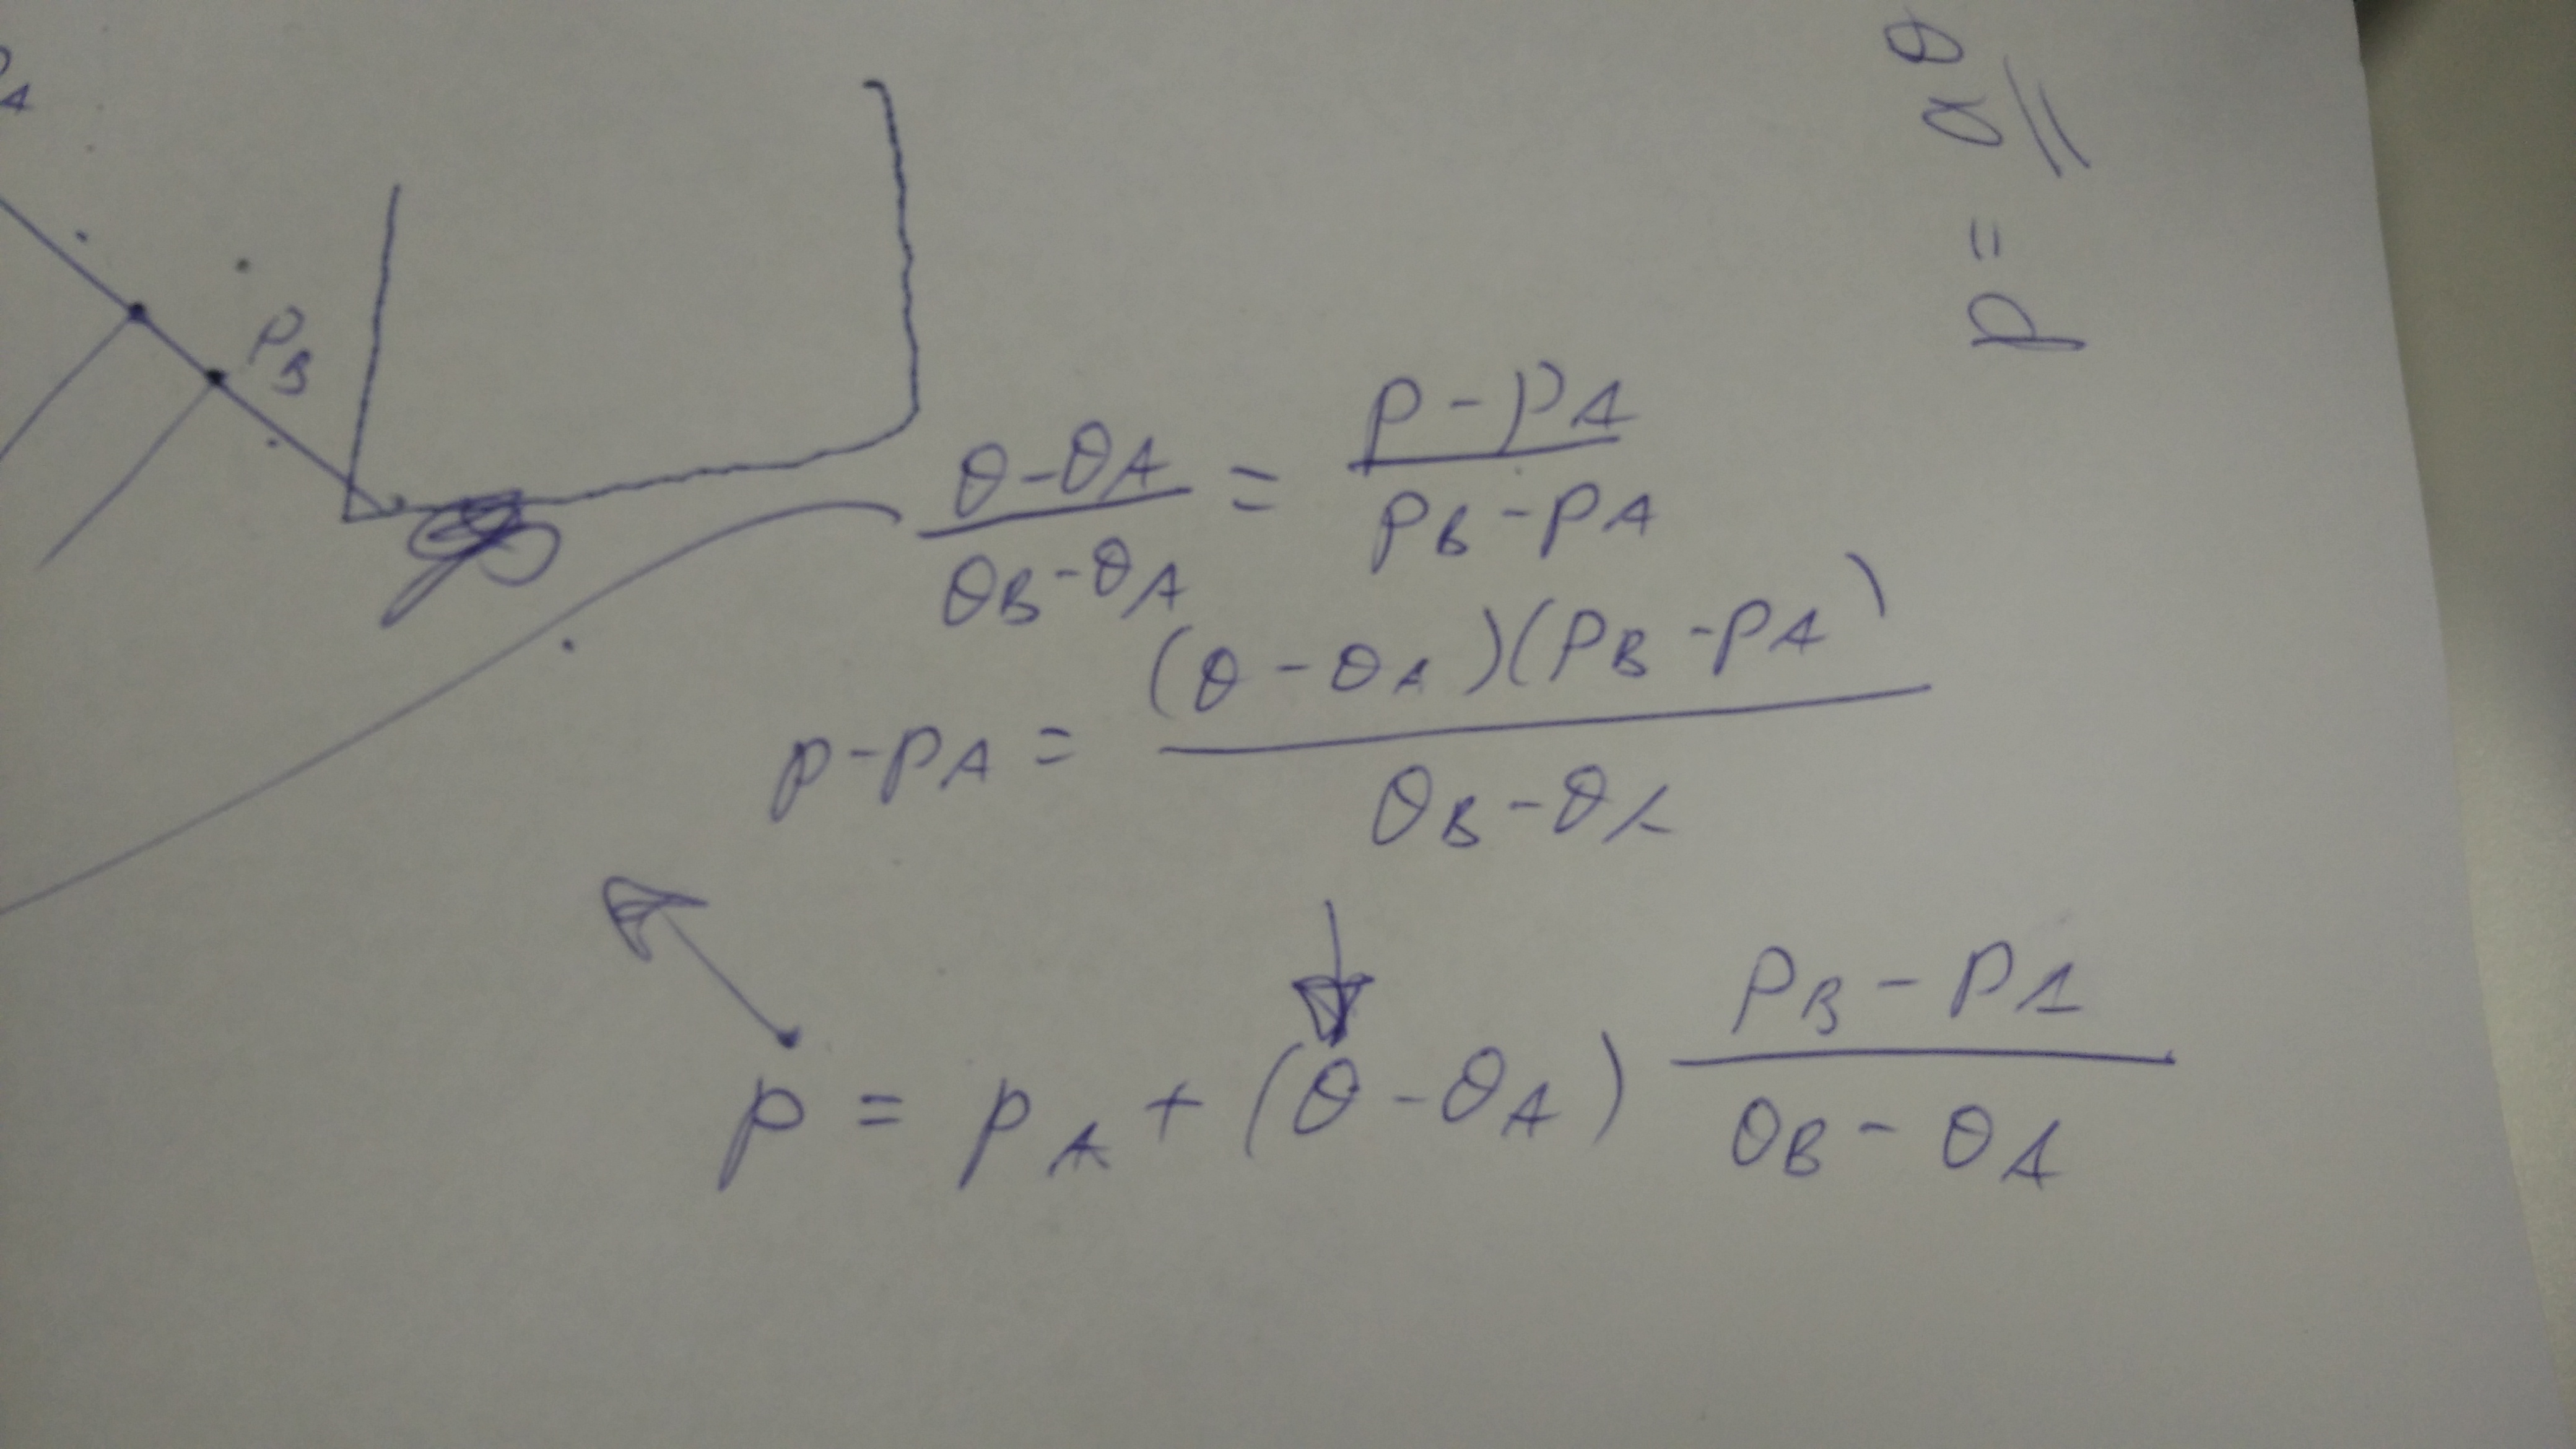 P_B
(θ - θ_A) / (θ_B - θ_A) = (p - p_A) / (p_B - p_A)
p - p_A = (θ - θ_A)(p_B - p_A) / (θ_B - θ_A)
p = p_A + (θ - θ_A) (p_B - p_A) / (θ_B - θ_A)